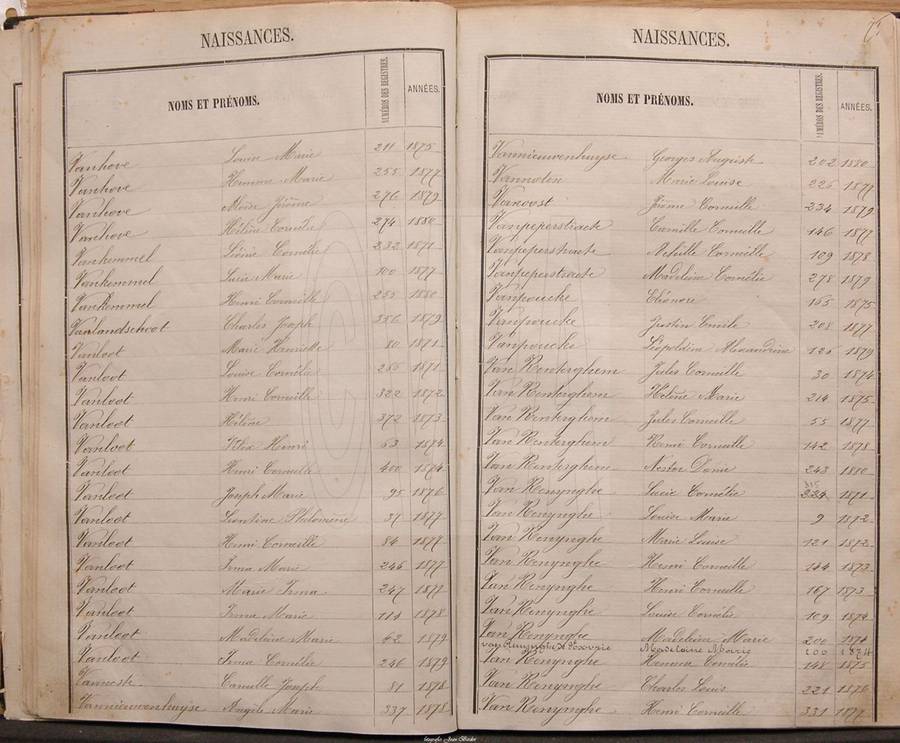 NAISSANCES.
NOMS ET PRÉNOMS.
NUMÉROS DES REGISTRES.
ANNÉES.
Vanhove Louise Marie 211 1875
Vanhove Hemma Marie 255 1877
Vanhove Aloïse Jérôme 276 1879
Vanhove Hélène Cornélie 274 1880
Vankemmel Léonie Cornélie 232 1871
Vankemmel Lucie Marie 100 1877
Vankemmel Henri Corneille 255 1880
Vanlandschoot Charles Joseph 356 1879
Vanloot Marie Henriette 80 1871
Vanloot Louise Cornélie 265 1871
Vanloot Henri Corneille 322 1872
Vanloot Hélène 372 1873
Vanloot Henri 63 1874
Vanloot Henri Corneille 400 1874
Vanloot Joseph Marie 95 1876
Vanloot Léontine Philomène 37 1877
Vanloot Henri Corneille 84 1877
Vanloot Irma Marie 246 1877
Vanloot Marie Irma 247 1877
Vanloot Irma Marie 114 1878
Vanloot Madeleine Marie 42 1879
Vanloot Irma Cornélie 246 1879
Vanneste Camille Joseph 81 1878
Vannieuwenhuyse Angèle Marie 337 1878
NAISSANCES.
NOMS ET PRÉNOMS.
NUMÉROS DES REGISTRES.
ANNÉES.
Vannieuwenhuyse Georges Auguste 202 1880
Vannoten Marie Louise 226 1879
Vanoost Jérôme Corneille 234 1879
Vanpeperstraete Camille Corneille 146 1877
Vanpeperstraete Achille Corneille 109 1878
Vanpeperstraete Madeleine Cornélie 278 1879
Vanpoucke Eléonore 163 1875
Vanpoucke Justin Emile 208 1877
Vanpoucke Léopoldine Alexandrine 126 1879
Van Renterghem Jules Corneille 30 1874
Van Renterghem Hélène Marie 214 1875
Van Renterghem Jules Corneille 55 1877
Van Renterghem Remi Corneille 142 1878
Van Renterghem Nestor 243 1880
Van Renynghe Lucie Cornélie 315 224 1871
Van Renynghe Louise Marie 9 1872
Van Renynghe Marie Louise 121 1872
Van Renynghe Henri Corneille 144 1873
Van Renynghe Henri Corneille 167 1873
Van Renynghe Louise Cornélie 109 1874
Van Renynghe Madeleine Marie 200 1874
van Renynghe Madelaine Marie 200 1874
Van Renynghe Hemma Cornélie 148 1875
Van Renynghe Charles Louis 221 1876
Van Renynghe Henri Corneille 331 1877